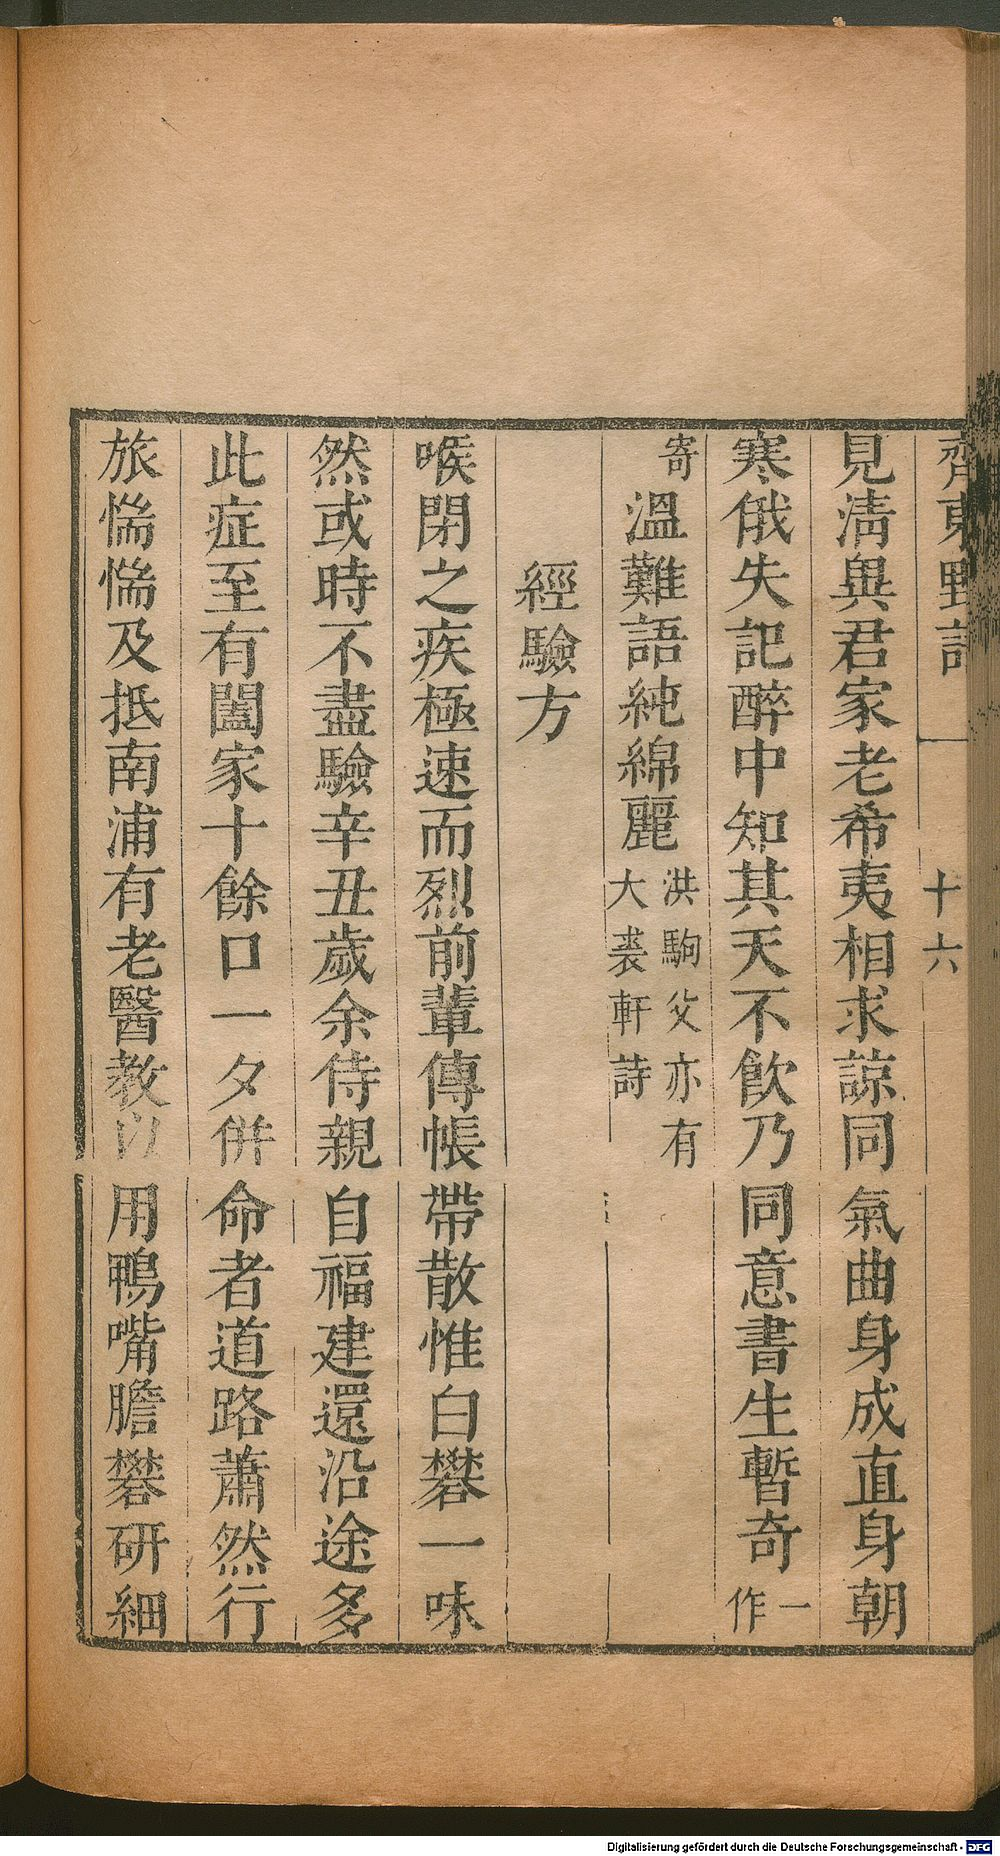 齊東野語 一 十六
見淸與君家老希夷相求諒同氣曲身成直身朝
寒俄失記醉中知其天不飮乃同意書生暫奇一作
寄溫難語純綿麗洪駒父亦有大裘軒詩
經驗方
喉閉之疾極速而烈前輩傳帳帶散惟白礬一味
然或時不盡驗辛丑歲余侍親自福建還沿途多
此症至有闔家十餘口一夕併命者道路蕭然行
旅惴惴及抵南浦有老醫教以用鴨嘴膽礬研細
Digitalisierung gefördert durch die Deutsche Forschungsgemeinschaft - DFG